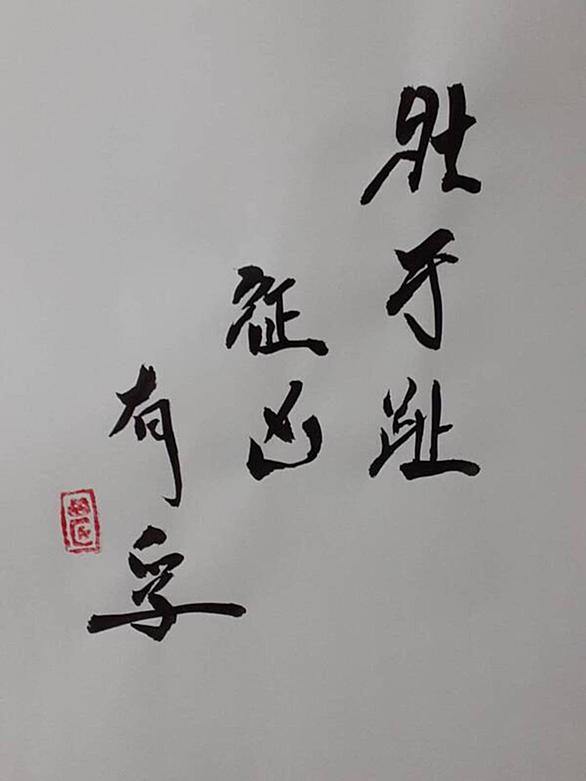 壯于趾
征凶
有孚